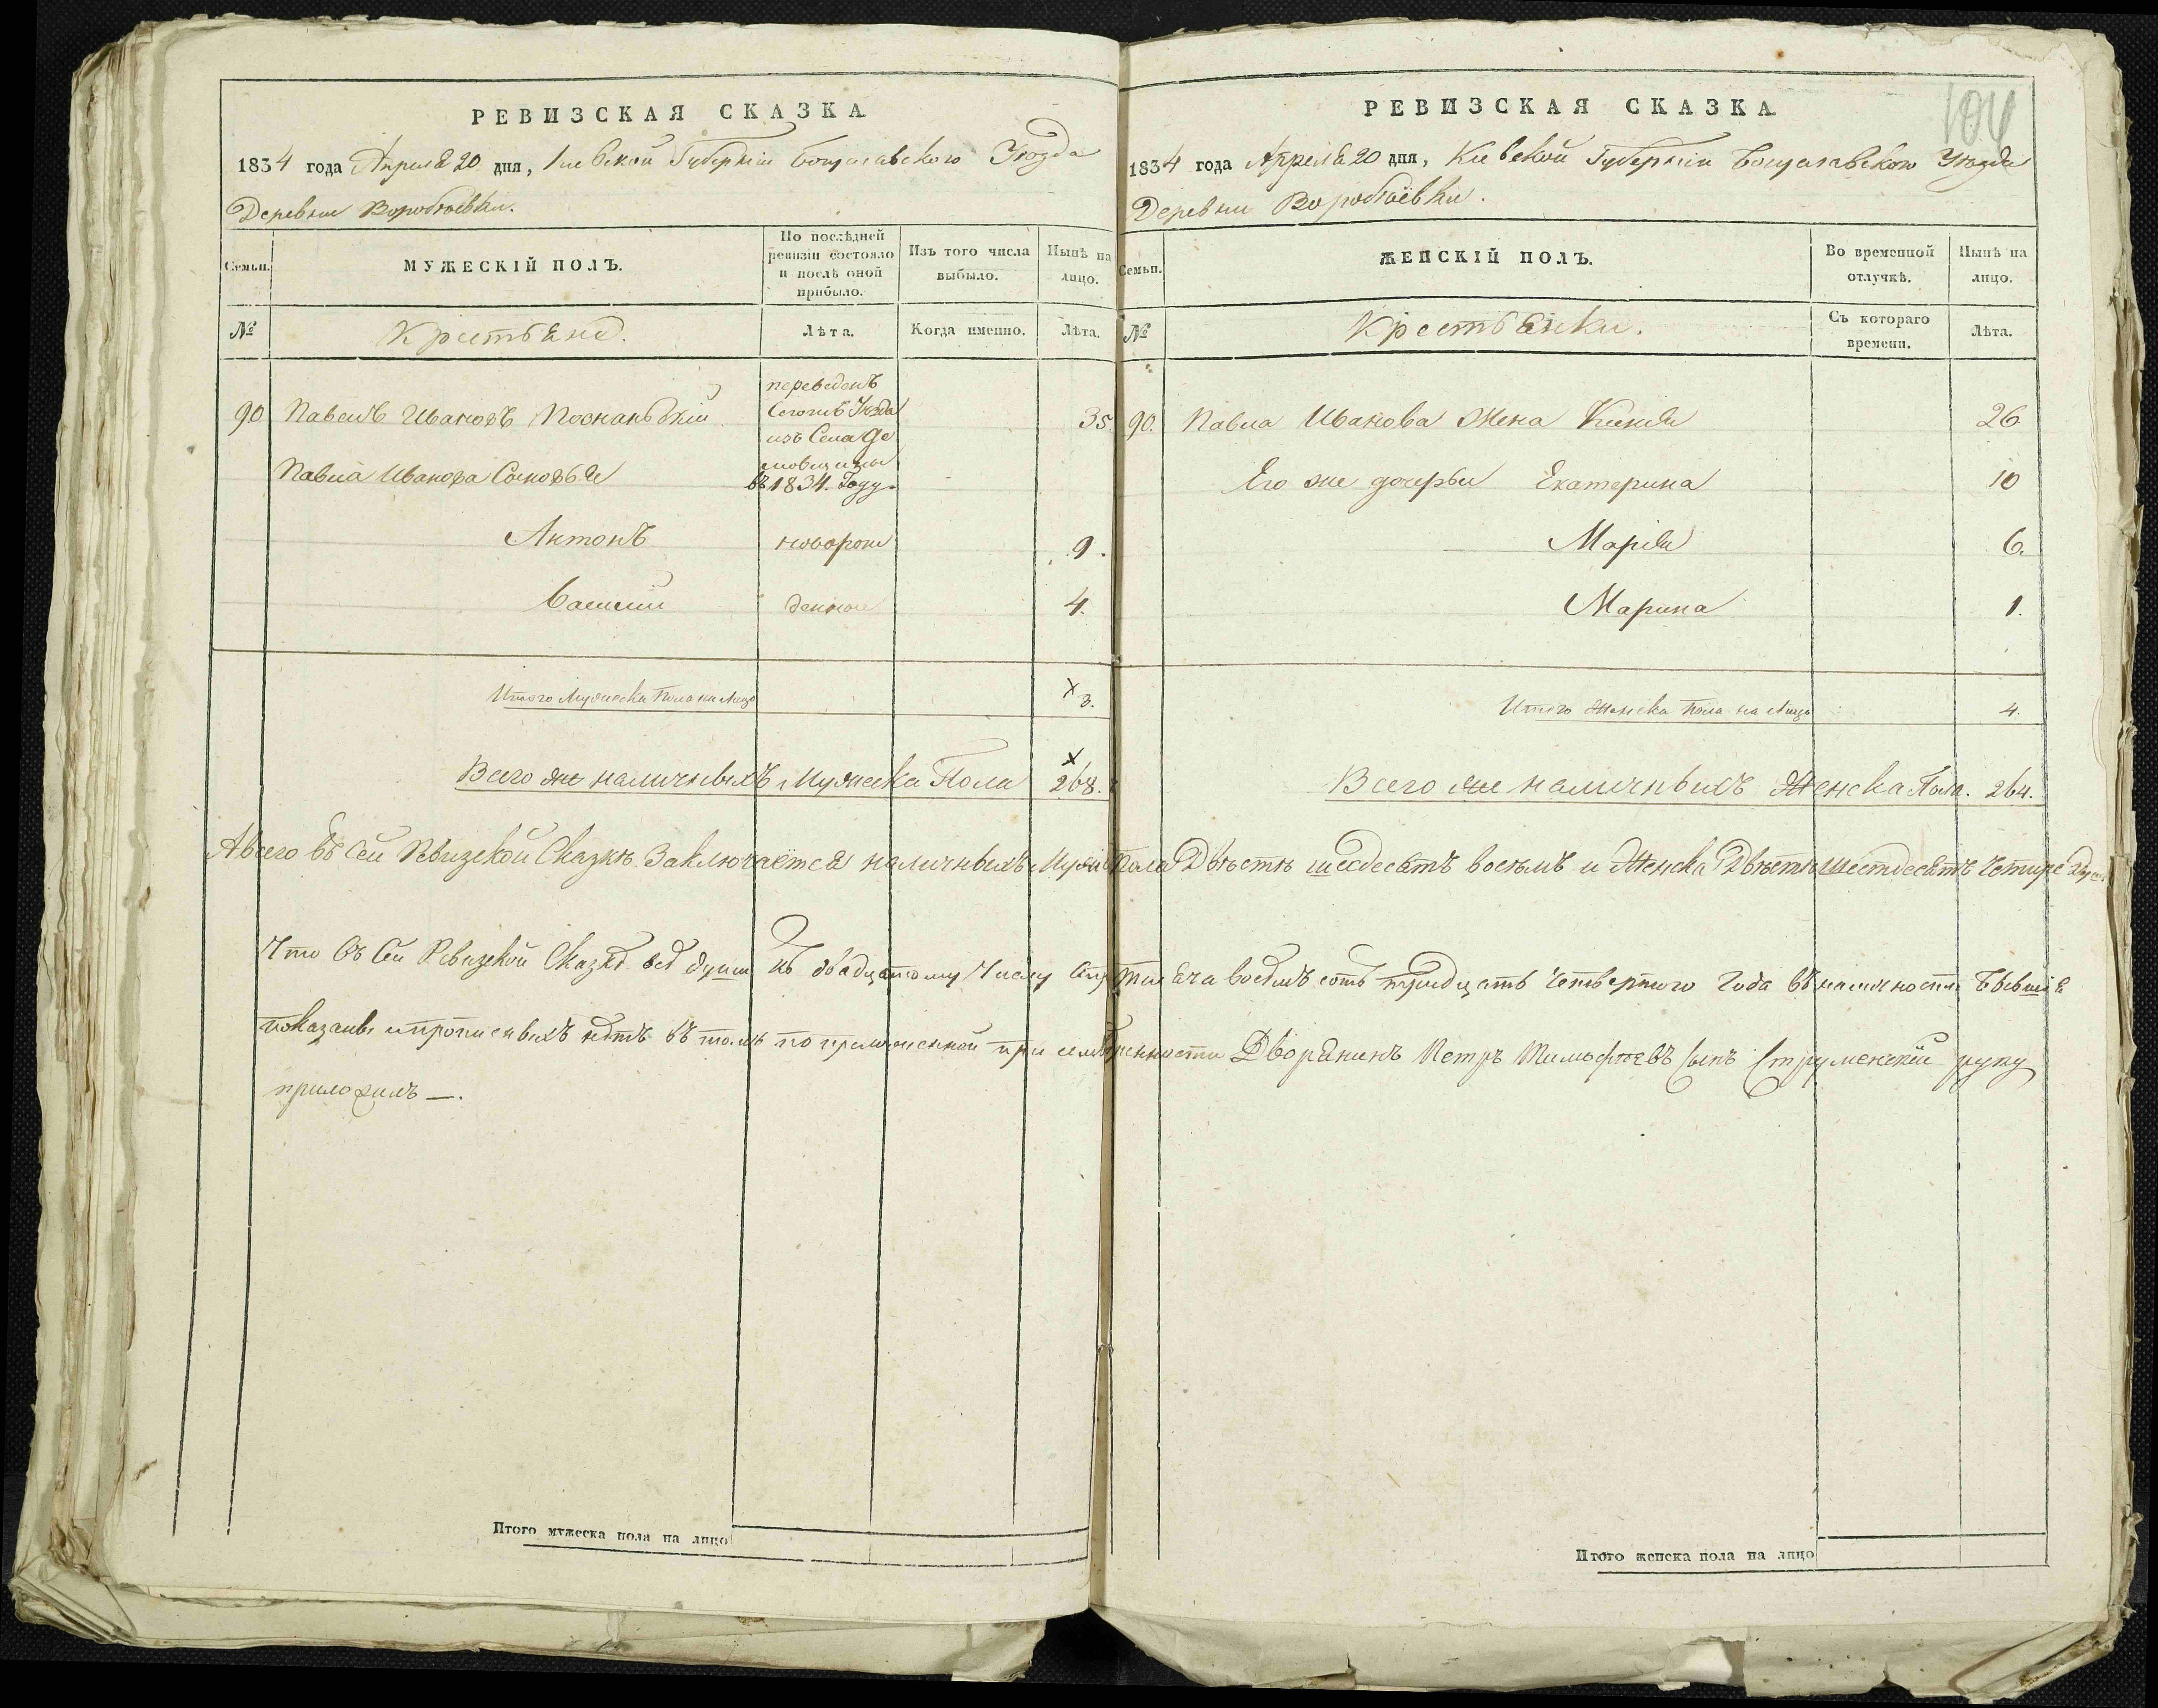 РЕВИЗСКАЯ СКАЗКА
1834 года Апреля 20 дня, Киевской Губерніи Богуславского Уѣзда
Деревни Воробіевки.
Семьи.
МУЖЕСКІЙ ПОЛЪ.
По послѣдней ревизіи состояло и послѣ оной прибыло.
Изъ того числа выбыло.
Нынѣ на лицо.
№
Крестьяне.
Лѣта.
Когда именно.
Лѣта.
переведенъ
90 Павелъ Ивановъ Познанскій Сегожъ Уѣзда 35
изъ Села
Павла Иванова Сыновья въ 1834. Году
Антонъ новорож 9.
Василій денные 4.
Итого Мужеска Пола на Лицо 3.
Всего же наличныхъ Мужеска Пола 268.
РЕВИЗСКАЯ СКАЗКА
104
1834 года Апреля 20 дня, Киевской Губерніи Богуславского Уѣзда
Деревни Воробіевки.
Семьи.
ЖЕНСКІЙ ПОЛЪ.
Во временной отлучкѣ.
Нынѣ на лицо.
№
Крестьянки.
Съ котораго времени.
Лѣта.
90. Павла Иванова Жена 26
Его же дочерьи Екатерина 10
Марія 6.
Марина 1.
Итого Женска Пола на Лицо 4.
Всего же наличныхъ Женска Пола. 264.
А всего въ сей Ревизской Сказкѣ Заключается наличныхъ Муже Пола Двѣсти шесдесятъ восемъ и Женска Двѣсти шестдесятъ четыре
Что въ Сей Ревизской Сказкѣ всѣ души къ двадцатому Числу тысяча восемъ сотъ тридцать четвертого Года въ наличности Бывшія
показаны и прописныхъ нѣтъ въ томъ по Дворянинъ Петръ Тимофѣевъ Сынъ Струменскій руку
приложилъ —.
Итого мужеска пола на лицо
Итого женска пола на лицо